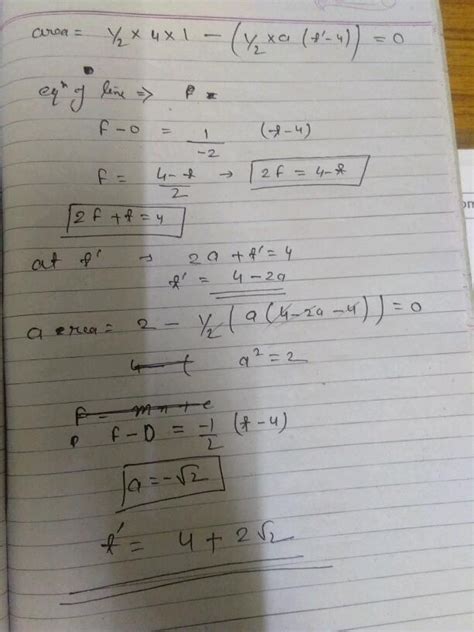 area = 1/2 × 4 × 1 − (1/2 × a (t'−4)) = 0
eqⁿ of line ⇒ F =
F − 0 = 1/−2 (t−4)
F = 4−t/2 → 2F = 4−t
2F + t = 4
at t' → 2a + t' = 4
t' = 4 − 2a
a area = 2 − 1/2 (a(4−2a−4)) = 0
4 − ( a² = 2
F = mx + c
F − 0 = −1/2 (t−4)
a = −√2
t' = 4 + 2√2